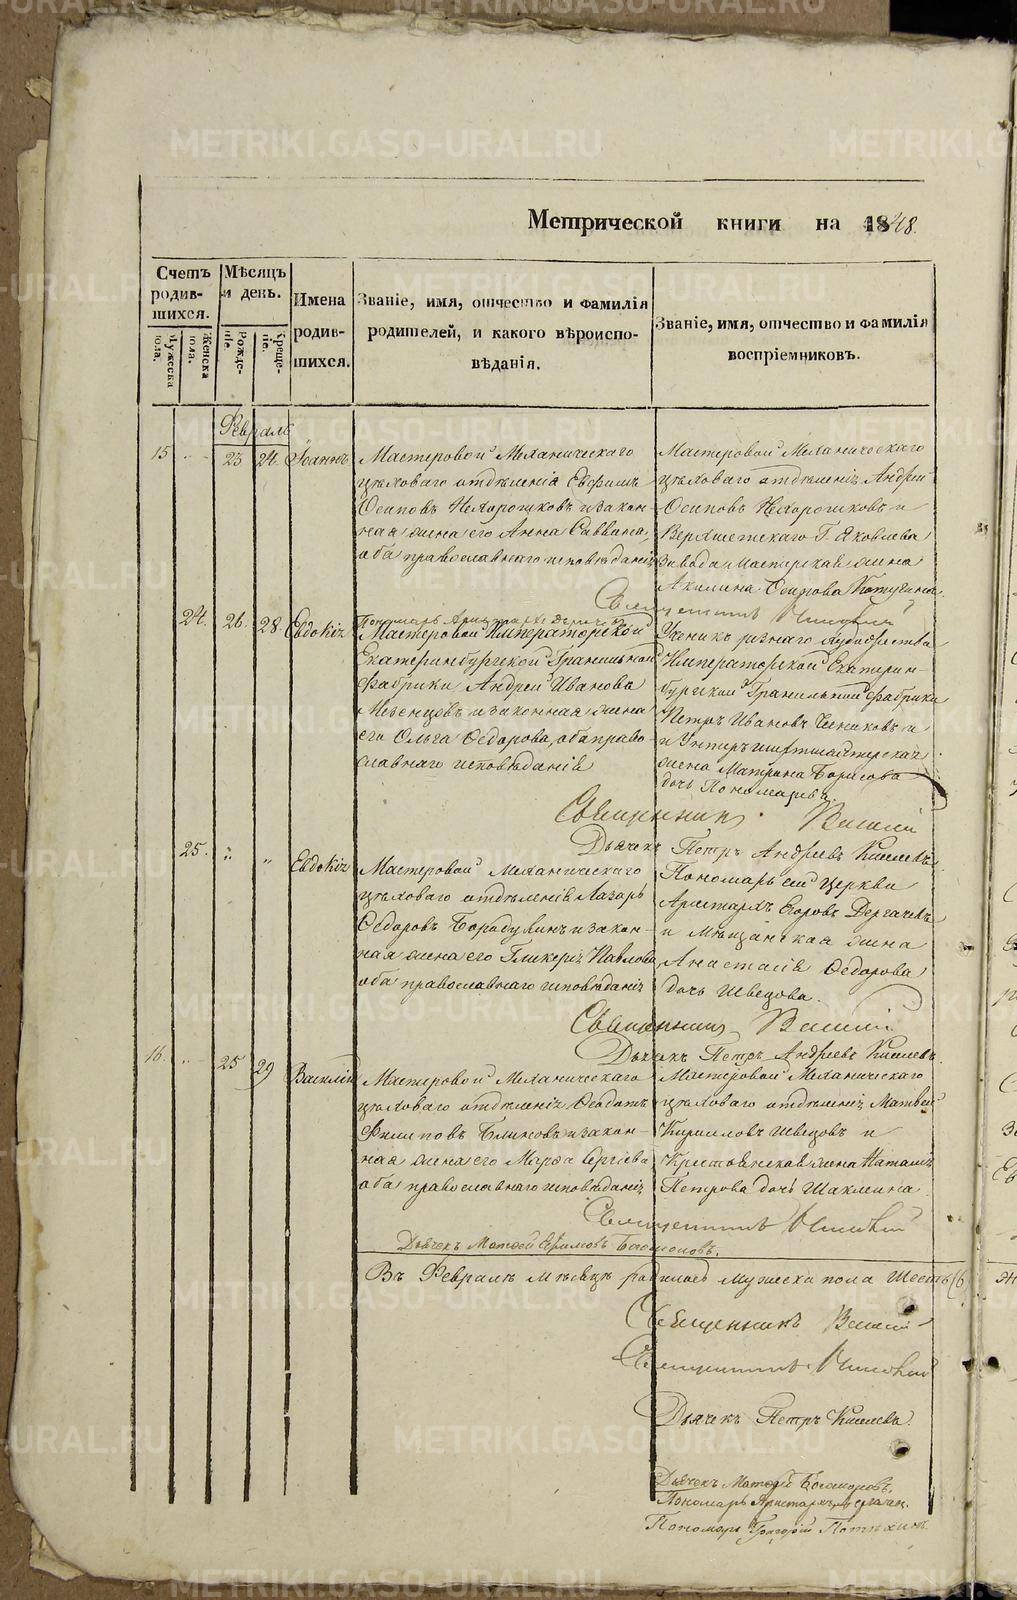 METRIKI.GASO-URAL.RU
Метрической книги на 1848.
Счетъ родив-шихся.
Мужеска пола.
Женска пола.
Мѣсяцъ и день.
Рожде-нія.
Креще-нія.
Имена родив-шихся.
Званіе, имя, отчество и фамилія
родителей, и какого вѣроиспо-
вѣданія.
Званіе, имя, отчество и фамилія
воспріемниковъ.
Февраль
15 23 24. Іоаннъ
Мастеровой Механическаго
цѣховаго отдѣленія Евфимъ
Осиповъ Нехорошковъ и закон-
ная жена его Анна Саввина,
оба православнаго исповѣданія
Мастеровой Механическаго
цѣховаго отдѣленія Андрей
Осиповъ Нехорошковъ и
Верхисетскаго Г. Яковлева
завода Мастерская жена
Акилина Осипова
Священникъ
24. 26. 28. Евдокія
Мастеровой Императорской
Екатеринбургской Гранильной
Фабрики Андрей Иванова
Мезенцовъ и законная жена
его Ольга Ѳедорова, оба право-
славнаго исповѣданія
Ученикъ
Императорской Екатерин-
бургской Гранильной фабрики
Петръ Ивановъ и
жена Матрона Борисова
дочь Пономарева.
Священникъ Василій
Дьячекъ Петръ Андреевъ Киселевъ
25. Евдокія
Мастеровой Механическаго
цѣховаго отдѣленія Лазарь
Ѳедоровъ Бородулинъ и закон-
ная жена его Гликерія Павлова
оба православнаго исповѣданія
Пономарь сей церкви
Аристархъ Егоровъ Дергачевъ
и Мѣщанская жена
Анастасія Ѳедорова
дочь Швецова.
Священникъ Василій
Дьячекъ Петръ Андреевъ Киселевъ.
16. 25 29 Василій
Мастеровой Механическаго
цѣховаго отдѣленія Ѳеодотъ
Филиповъ Блиновъ и закон-
ная жена его Марѳа Сергіева
оба православнаго исповѣданія
Мастеровой Механическаго
цѣховаго отдѣленія Матвей
Кириловъ Швецовъ и
Крестьянская жена Наталія
Петрова дочь Шаклеина
Священникъ
Дьячекъ Матѳей Ефимовъ
Въ Февралѣ мѣсяцѣ родилось мужеска пола Шесть (6
Священникъ Василій
Священникъ
Дьячекъ Петръ Киселевъ.
Дьячекъ Матѳей
Пономарь Аристархъ Дергачев.
Пономарь Григорій